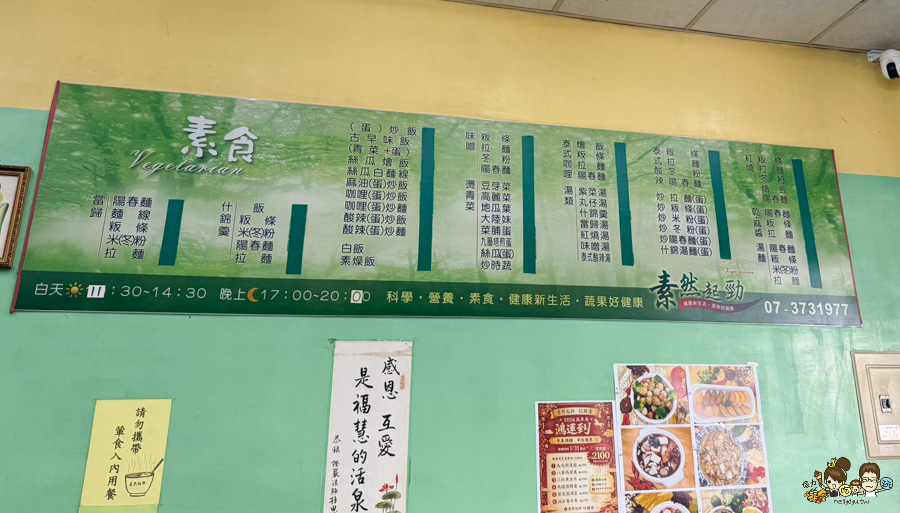 素食
Vegetarian
當歸
陽春麵
麵線
粄條
米(冬)粉
拉麵
什錦羹
飯
粄條
米(冬)粉
陽春麵
拉麵
(蛋)炒飯
古早味飯
(青菜+蛋)
絲瓜燴飯
絲瓜白麵
麻油(蛋)麵線
咖哩(蛋)炒飯
咖哩(蛋)炒麵
酸辣(蛋)炒飯
酸辣(蛋)炒麵
白飯
素燥飯
味噌
粄條
拉麵
冬粉
陽春麵
燙青菜
豆芽菜
高麗菜
地瓜葉
大陸妹
菜脯蛋
九層塔煎蛋
絲瓜蛋
炒時蔬
泰式咖哩
燴飯
粄條
拉麵
陽春麵
湯類
紫菜湯
丸仔湯
什錦湯
當歸湯
紅燒湯
味噌湯
泰式酸辣湯
泰式酸辣
粄條
拉麵
冬粉
陽春麵
炒麵(蛋)
炒粄條(蛋)
炒米粉(蛋)
炒冬粉(蛋)
炒陽春麵(蛋)
什錦炒麵(蛋)
紅燒
粄條
拉麵
冬粉
燴飯
陽春麵
乾麻醬
湯麵
陽春麵
粄條
米(冬)粉
拉麵
白天 11:30~14:30 晚上 17:00~20:00 科學・營養・素食・健康新生活・蔬果好健康
素然起勁
Vegetarian
健康新生活・蔬果好健康
07-3731977
請勿攜帶
葷食入內用餐
感恩 互愛
是福慧的活泉
鴻運到
2100